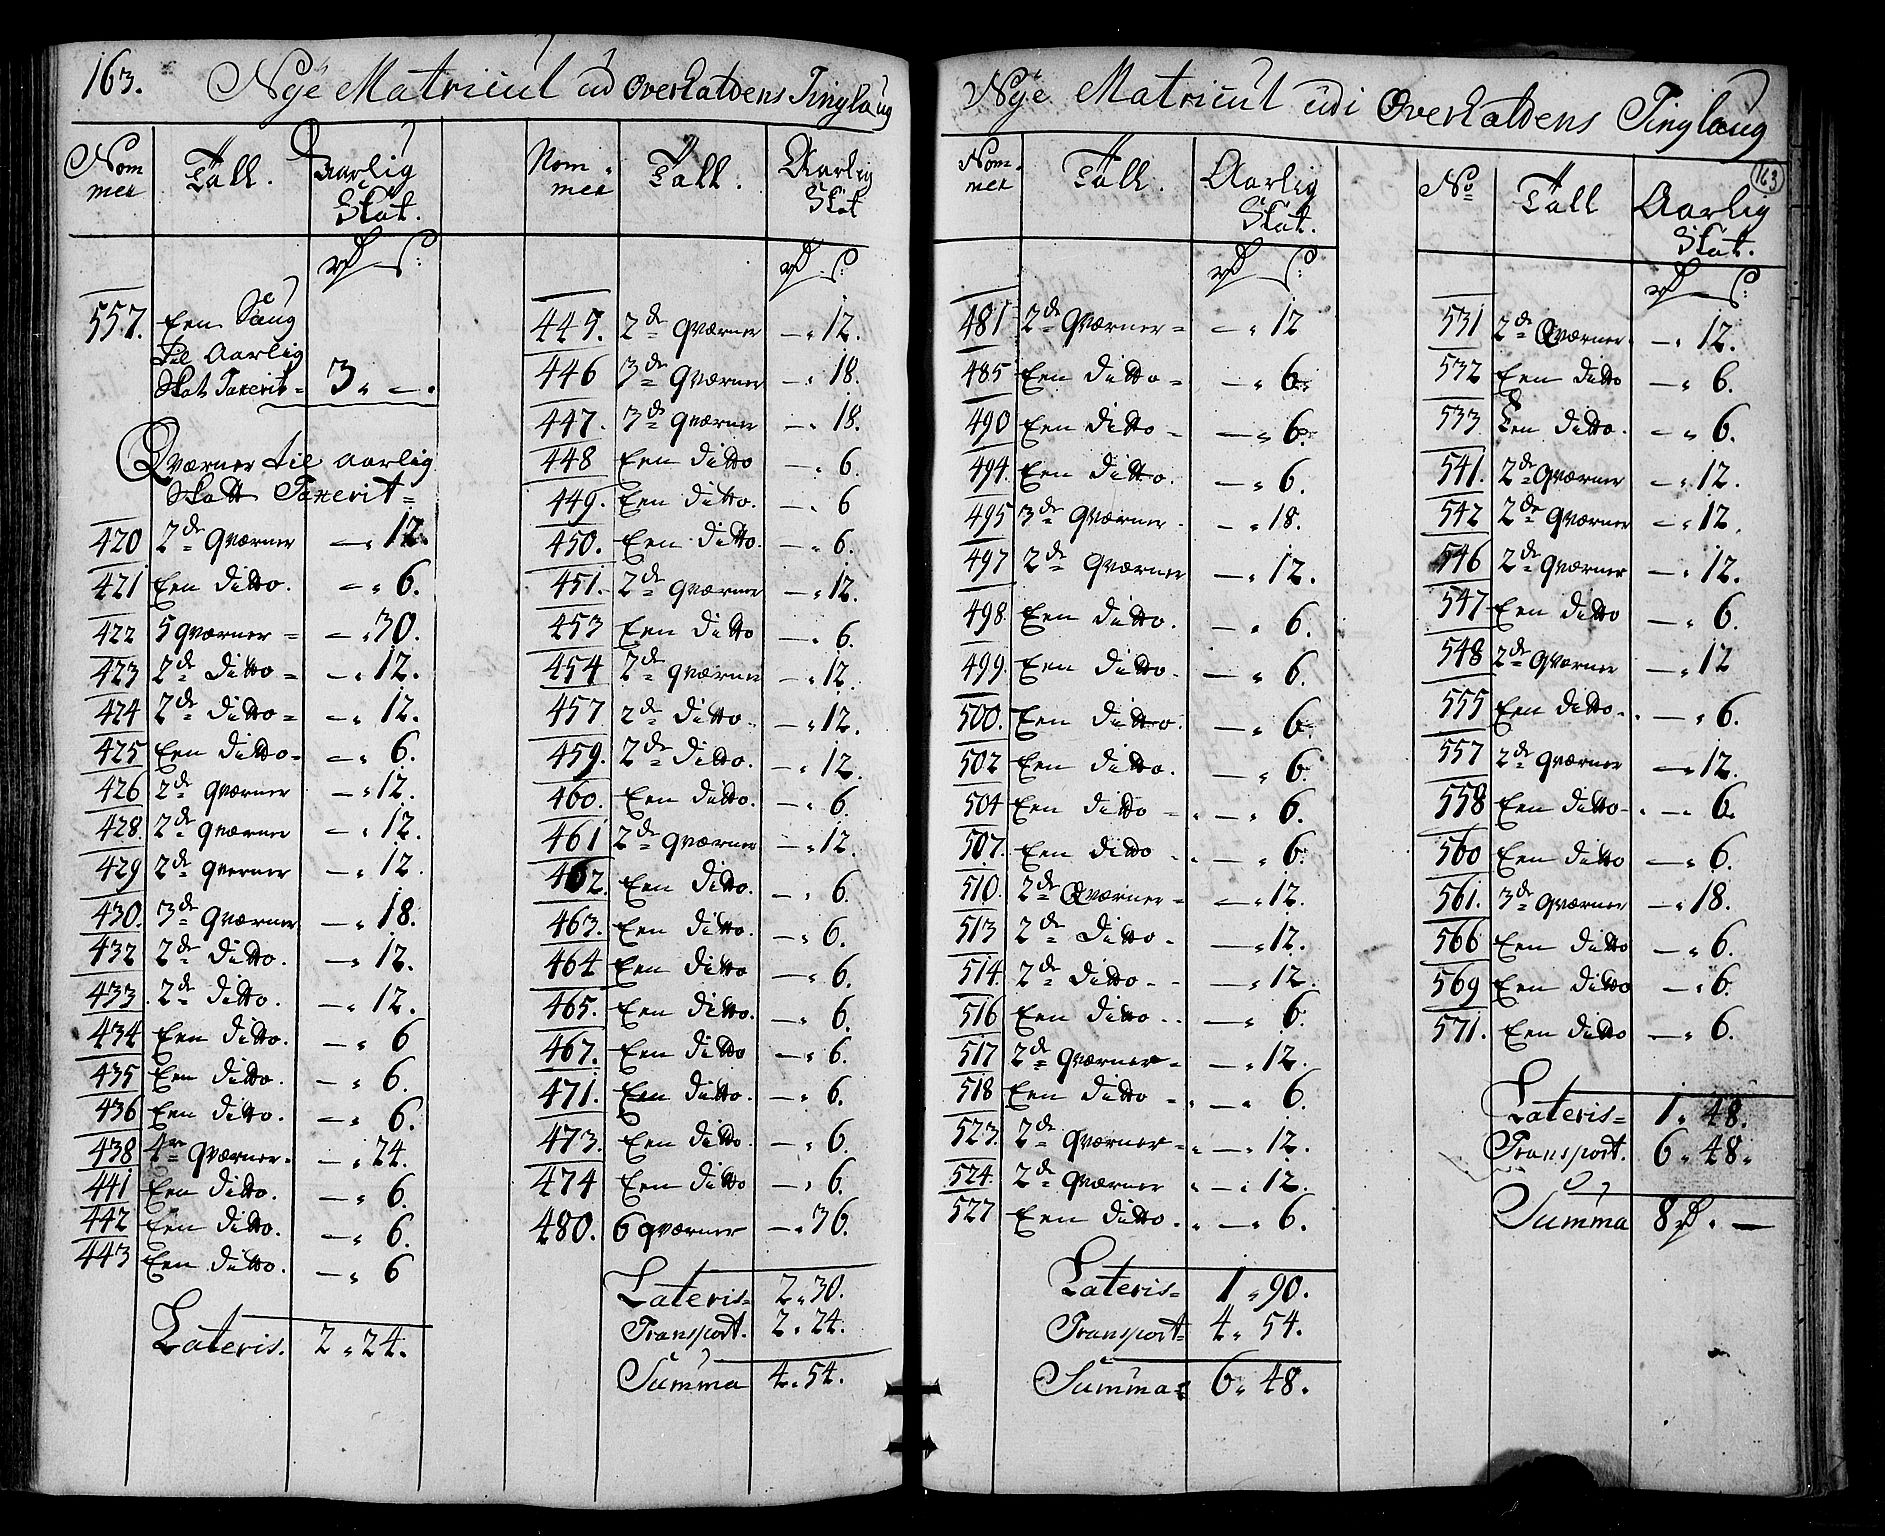 163. Nÿe Matricul ud Overhaldens Tinglaug
Nom mer Tall. Aarlig Skat.
rd s:
557. Een Saug
til Aarlig
Skat Taxerit = 3 „ —.
Qværner til aarlig
Skatt Taxerit =
420 2de Qværner — „ 12.
421 Een ditto. — „ 6.
422 5 qværner = — „ 30.
423 2de ditto = — „ 12.
424 2de ditto = — „ 12.
425 Een ditto — „ 6.
426 2de qværner — „ 12.
428. 2de qværner — „ 12.
429 2de qverner — „ 12.
430. 3de qværner — „ 18.
432 2de ditto. — „ 12.
433. 2de ditto. — „ 12.
434 Een ditto. — „ 6
435 Een ditto. — „ 6.
436 Een ditto. — „ 6.
438 4re qværner. — „ 24.
441 Een ditto. — „ 6.
442 Een ditto. — „ 6.
443 Een ditto. — „ 6
Lateris. 2 „ 24.
Nom mer Tall. Aarlig Skat
rd s:
445. 2de qværner — „ 12.
446 3de qværner — „ 18.
447. 3de qværner — „ 18.
448 Een ditto — „ 6.
449. Een ditto. — „ 6
450. Een ditto. — „ 6.
451. 2de qværner — „ 12.
453 Een ditto — „ 6.
454 2de qværner — „ 12.
457 2de ditto. — „ 12.
459. 2de ditto. — „ 12.
460. Een ditto. — „ 6.
461 2de qværner — „ 12.
462. Een ditto. — „ 6.
463. Een ditto. — „ 6.
464 Een ditto — „ 6.
465. Een ditto. — „ 6.
467. Een ditto — „ 6.
471. Een ditto. — „ 6.
473. Een ditto. — „ 6.
474 Een ditto — „ 6.
480. 6 qværner — „ 36.
Lateris 2 „ 30.
Transport. 2 „ 24.
Summa 4 „ 54.
Nÿe Matricul udi Overhaldens Tinglaug
163
Nom mer Tall. Aarlig Skat.
rd s:
481 2de qværner = — „ 12
485 Een ditto = — „ 6.
490 Een ditto — „ 6.
494. Een ditto. — „ 6.
495 3de qværner. — „ 18.
497 2de qværner — „ 12.
498. Een ditto. — „ 6.
499. Een ditto. — „ 6.
500. Een ditto. — „ 6.
502 Een ditto. — „ 6.
504 Een ditto — „ 6.
507. Een ditto — „ 6.
510. 2de Qværner — „ 12.
513 2de ditto. — „ 12.
514. 2de ditto. — „ 12.
516 Een ditto. — „ 6.
517 2de qværner — „ 12.
518 Een ditto — „ 6.
523. 2de qværner — „ 12.
524. 2de qværner — „ 12.
527 Een ditto. — „ 6.
Lateris = 1 „ 90.
Transport = 4 „ 54.
Summa 6 „ 48.
No Tall Aarlig Skat.
rd s:
531 2de Qværner. — „ 12.
532 Een ditto — „ 6.
533 Een ditto. — „ 6.
541. 2de qværner — „ 12.
542 2de qværner — „ 12.
546 2de qværner — „ 12.
547 Een ditto — „ 6.
548 2de qværner — „ 12
555 Een ditto. — „ 6.
557 2de qværner — „ 12.
558 Een ditto — „ 6.
560 Een ditto — „ 6.
561. 3de qværner — „ 18.
566 Een ditto — „ 6.
569 Een ditto — „ 6.
571. Een ditto — „ 6.
Lateris = 1 „ 48.
Transport. 6 „ 48.
Summa 8 rd. —